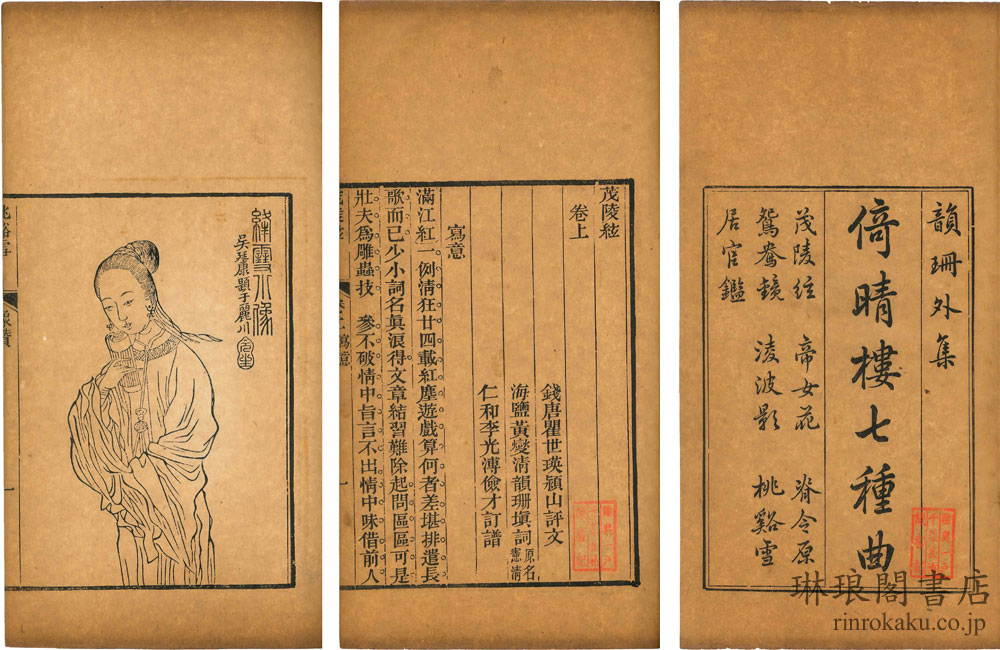 韻珊外集
倚晴樓七種曲
茂陵絃　帝女花　脊令原
鴛鴦鏡　淩波影　桃谿雪
居官鑑
茂陵絃
卷上
錢唐瞿世瑛穎山評文
海鹽黃燮清韻珊塡詞 原名憲清
仁和李光溥儉才訂譜
寫意
滿江紅一例淸狂廿四載紅塵遊戲算何者差堪排遣長
歌而已少小詞名眞浪得文章結習難除起問區區可是
壯夫爲雕蟲技　參不破情中旨言不出情中味借前人
寫意
一
絳雪小像
像贊
一
琳琅閣書店
rinrokaku.co.jp